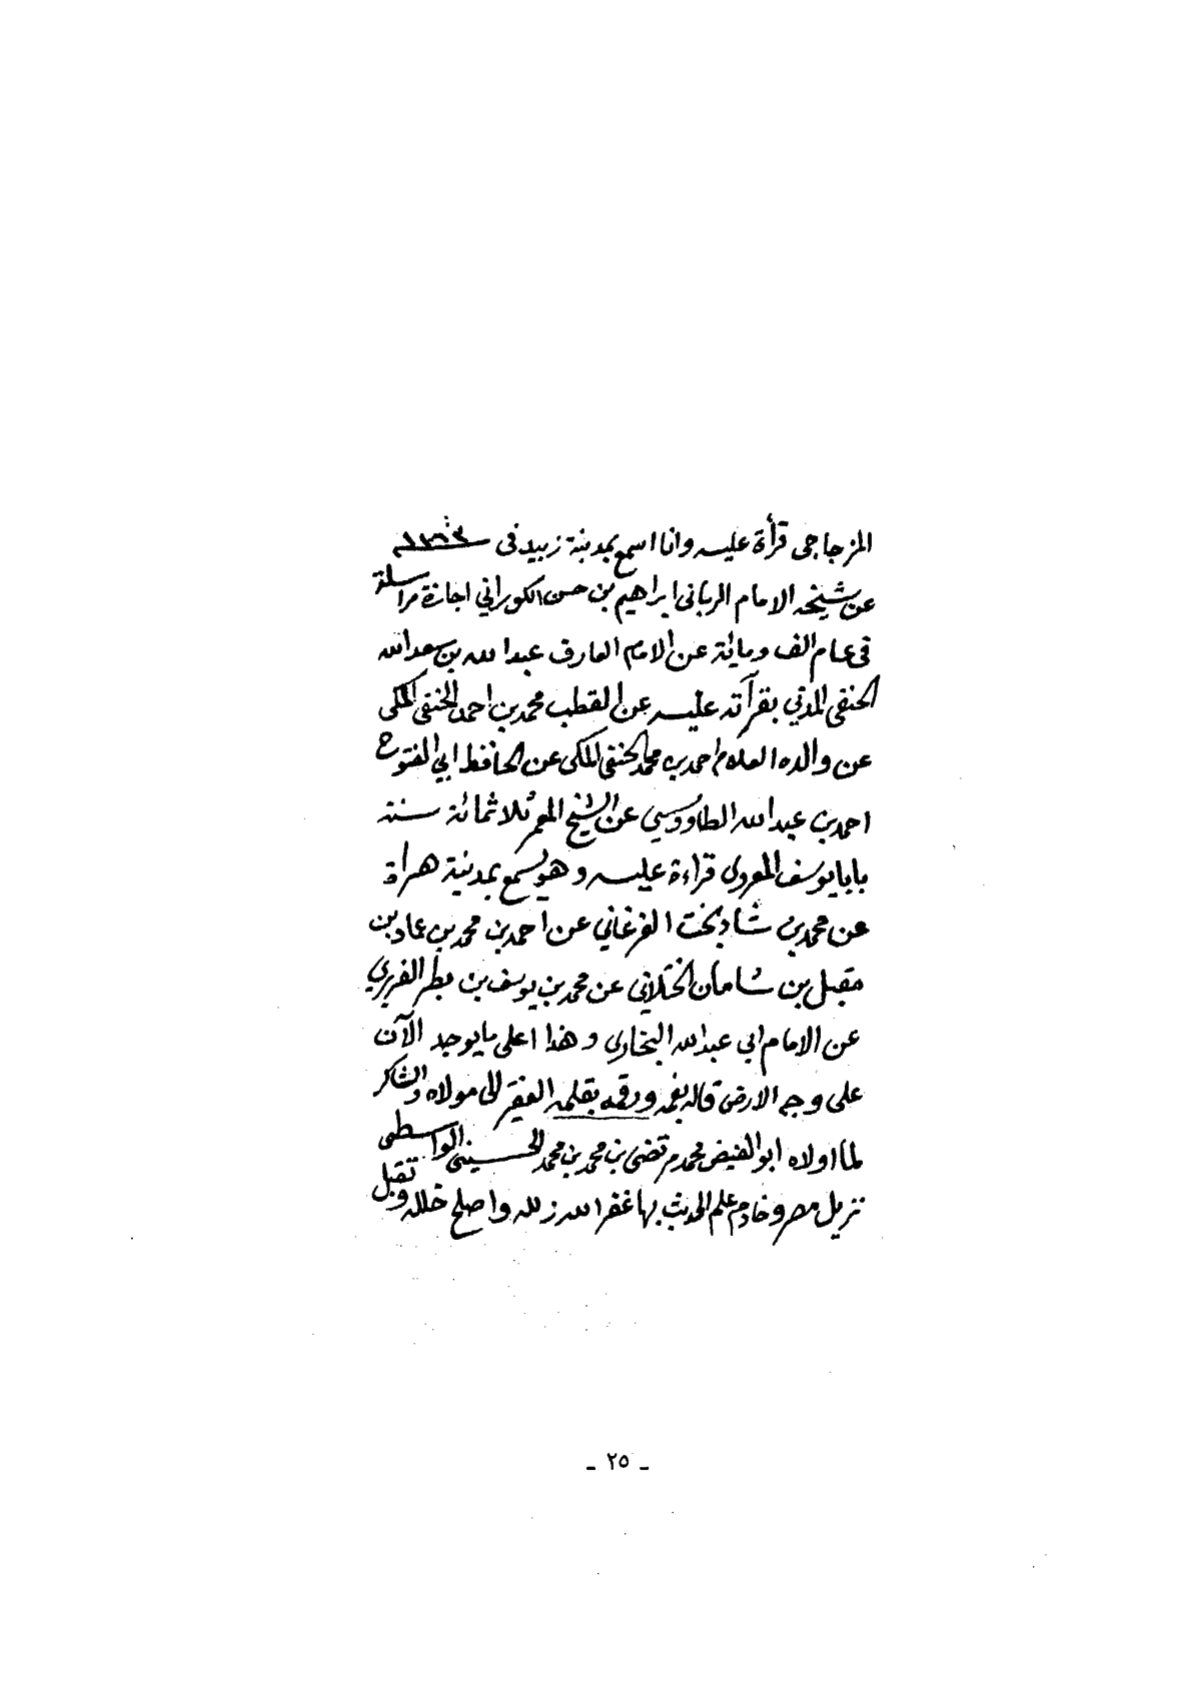 المزجاجى قرأة عليه وانا اسمع بمدينة زبيد فى
عن شيخه الامام الربانى ابراهيم بن حسن الكوراني اجازة مراسلة
فى عام الف ومائة عن الامام العارف عبد الله بن سعد الله
الحنفى المدني بقرآته عليه عن القطب محمد بن احمد الحنفى المكى
عن والده العلام احمد بن محمد الحنفى المكى عن الحافظ ابي الفتوح
احمد بن عبد الله الطاووسي عن الشيخ المعمر ثلاثمائة سنة
بابا يوسف الهروى قراءة عليه وهو يسمع بمدينة هراة
عن محمد بن شاد بخت الفرغاني عن احمد بن محمد بن عماد بن
مقبل بن شاهان الختلاني عن محمد بن يوسف بن مطر الفربري
عن الامام ابي عبد الله البخاري وهذا اعلى ما يوجد الآن
على وجه الارض قاله بفمه ورقمه بقلمه الفقير الى مولاه والشاكر
لما اولاه ابو الفيض محمد مرتضى بن محمد بن محمد الحسينى الواسطى
نزيل مصر وخادم علم الحديث بها غفر الله زلله واصلح خلله وتقبل
ـ ٢٥ ـ